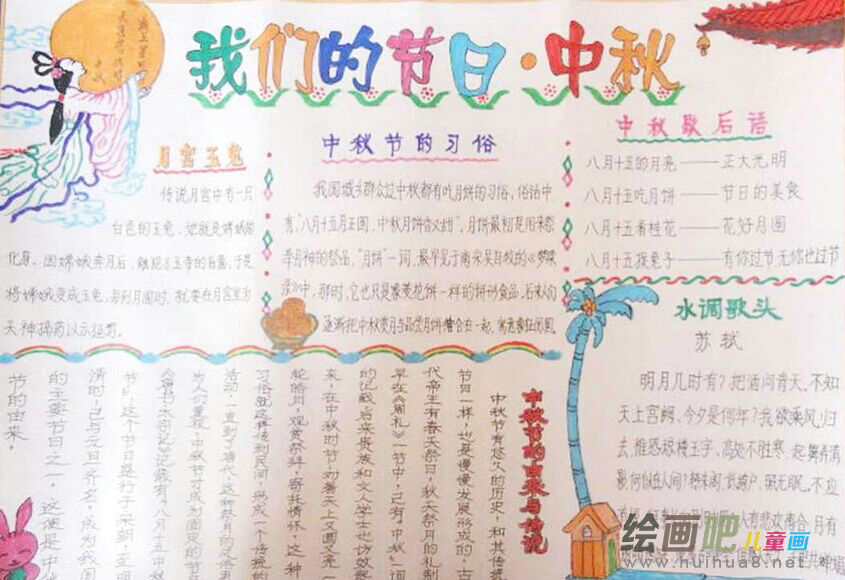 我们的节日·中秋
月宫玉兔
传说月宫中有一只
白色的玉兔，她就是嫦娥的
化身。因嫦娥奔月后，触犯了玉帝的旨意，于是
将嫦娥变成玉兔，每到月圆时，就要在月宫里为
天神捣药以示惩罚。
中秋节的习俗
我国城乡群众过中秋都有吃月饼的习俗，俗话中
有"八月十五月正圆，中秋月饼香又甜"。月饼最初是用来祭
奉月神的祭品，"月饼"一词，最早见于南宋吴自牧的《梦粱
录》中，那时，它也只是像菱花饼一样的饼形食品。后来人们
逐渐把中秋赏月与品尝月饼结合在一起，寓意家人团圆
中秋歇后语
八月十五的月亮——正大光明
八月十五吃月饼——节日的美食
八月十五看桂花——花好月圆
八月十五捉兔子——有你过节无你也过节
水调歌头
苏轼
明月几时有？把酒问青天。不知
天上宫阙，今夕是何年？我欲乘风归
去，惟恐琼楼玉宇，高处不胜寒。起舞弄清
影，何似在人间？转朱阁，低绮户，照无眠。不应
人有悲欢离合，月有
中秋节的由来与传说
中秋节有悠久的历史，和其传统
节日一样，也是慢慢发展形成的，古
代帝王有春天祭日，秋天祭月的礼制
早在《周礼》一书中，已有"中秋"一词
的记载后来贵族和文人学士也仿效起
来，在中秋时节，对着天上又圆又亮一
轮皓月，观赏祭拜，寄托情怀，这种
习俗就这样传到民间，形成一个传统的
活动，一直到了唐代，这种祭月的风俗更
为人们重视，中秋节才成为固定的节日
《唐书·太宗记》记载有"八月十五中秋
节"，这个节日盛行于宋朝，至明
清时，已与元旦齐名，成为我国
的主要节日之一，这便是中
节的由来。
绘画吧儿童画
www.huihua8.net